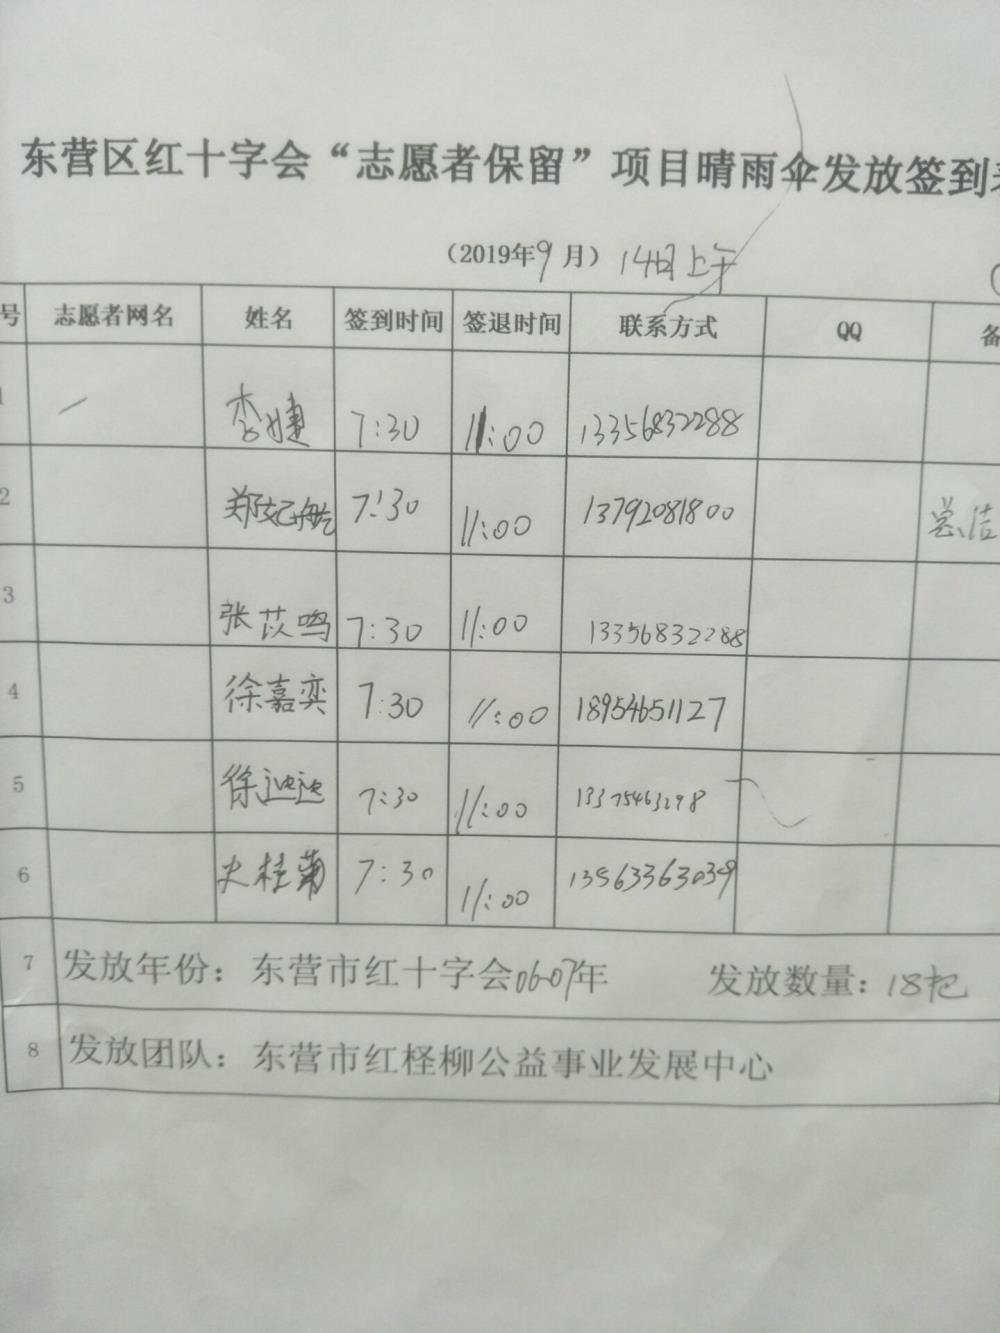 东营区红十字会“志愿者保留”项目晴雨伞发放签到
（2019年9月）14日上午
号 志愿者网名 姓名 签到时间 签退时间 联系方式 QQ 备
1 / 李婕 7:30 11:00 13356832288
2 郑妃 7:30 11:00 13792081800
3 张苡鸣 7:30 11:00 13356832288
4 徐嘉奕 7:30 11:00 18954651127
5 徐 7:30 11:00 13375463298
6 史桂菊 7:30 11:00 13563363039
7 发放年份：东营市红十字会06-07年 发放数量：18把
8 发放团队：东营市红柽柳公益事业发展中心